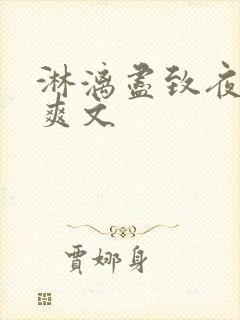 淋漓盡致夜
爽文
賈娜身